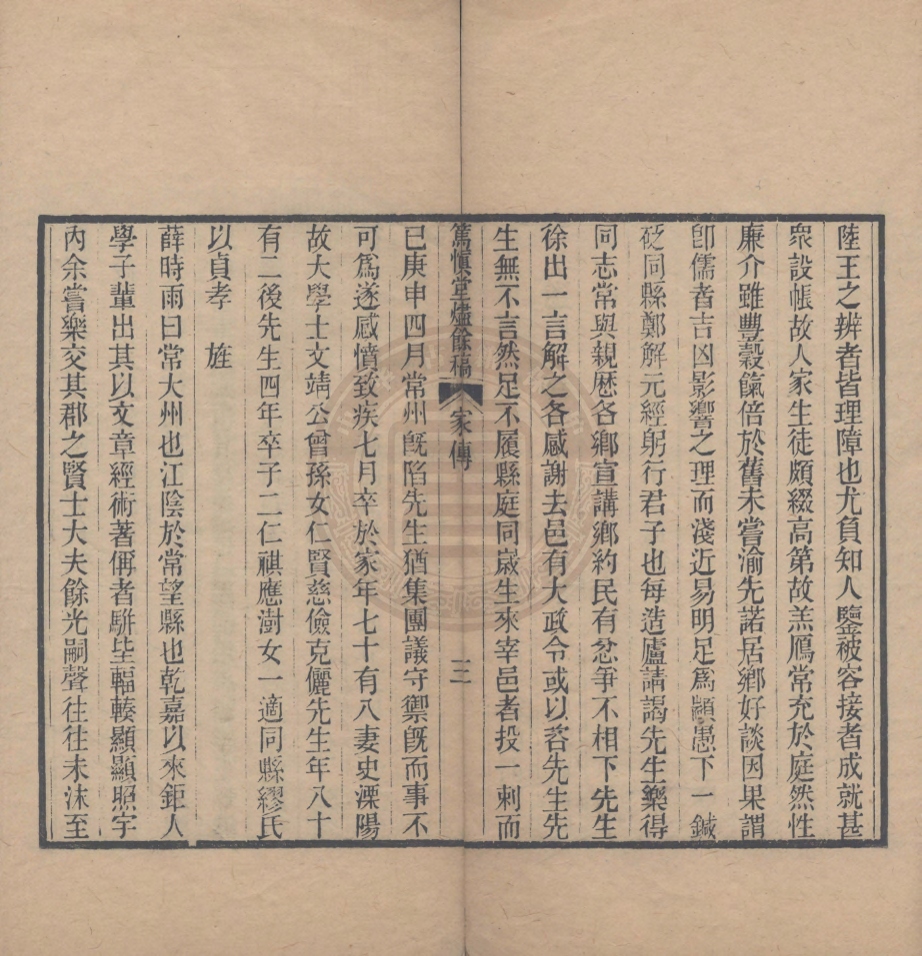 陸王之辨者皆理障也尤負知人鑒被容接者成就甚
衆設帳故人家生徒頗綴高第故羔鴈常充於庭然性
廉介雖豐穀餼倍於舊未嘗渝先諾居鄉好談因果謂
卽儒者吉凶影響之理而淺近易明足爲顓愚下一鍼
砭同縣鄭解元經躬行君子也每造廬請謁先生樂得
同志常與親歷各鄉宣講鄉約民有忿爭不相下先生
徐出一言解之各感謝去邑有大政令或以咨先生先
生無不言然足不履縣庭同歲生來宰邑者投一刺而
篤愼堂燼餘稿 家傳 三
已庚申四月常州旣陷先生猶集團議守禦旣而事不
可爲遂感憤致疾七月卒於家年七十有八妻史溧陽
故大學士文靖公曾孫女仁賢慈儉克儷先生年八十
有二後先生四年卒子二仁祺應澍女一適同縣繆氏
以貞孝 旌
薛時雨曰常大州也江陰於常望縣也乾嘉以來鉅人
學子輩出其以文章經術著偁者駢坒輻輳顯顯照宇
內余嘗樂交其郡之賢士大夫餘光嗣聲往往未沫至